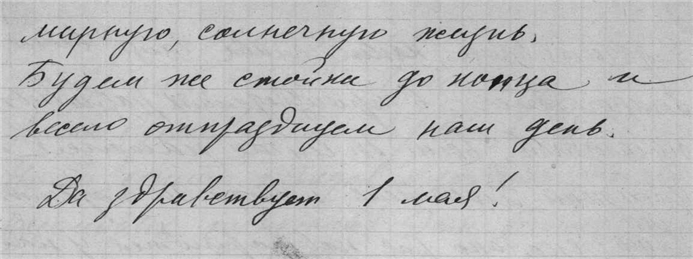 мирную, солнечную жизнь.
Будем же стойки до конца и
весело отпразднуем наш день.
Да здравствует 1 мая!